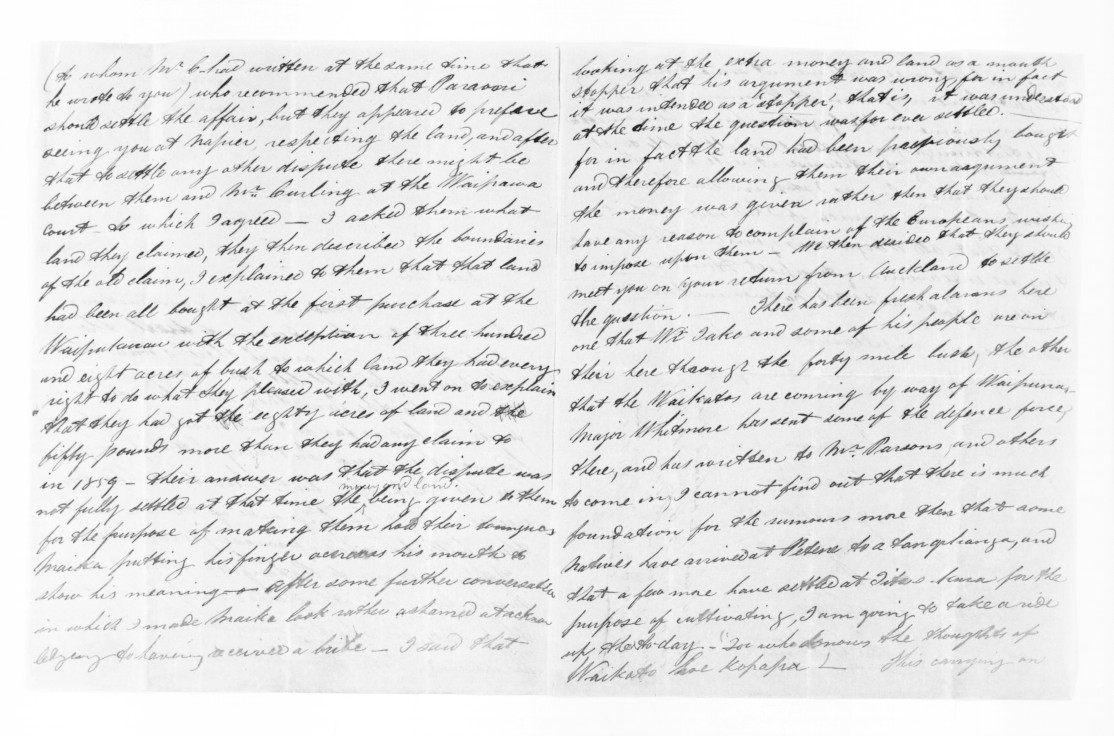 (to whom Mr C. had written at the same time that
he wrote to you) who recommended that Paraoni
should settle the affair, but they appeared to prefere
seeing you at Napier, respecting the land, and after
that to settle any other dispute there might be
between them and Mr. Curling at the Waipawa
court - to which I agreed — I asked them what
land they claimed, they then described the boundaries
of the old claim, I explained to them that that land
had been all bought at the first purchase at the
Waipukurau with the exception of three hundred
and eight acres of bush to which land they had every
right to do what they pleased with, I went on to explain
that they had got the eighty acres of land and the
fifty pounds more than they had any claim to
in 1859 - their answer was that the dispute was
not fully settled at that time the money and land being given to them
for the purpose of making them hold their tongues
Maika putting his finger across his mouth to
show his meaning — After some further conversation
in which I made Maika look rather ashamed at acknow
ledging to having received a bribe — I said that
looking at the extra money and land as a mouth
stopper that his argument was wrong, for in fact
it was intended as a stopper! that is, it was understood
at the time the question was for ever settled. —
for in fact the land had been previously bought
and therefore allowing them their own argument
the money was given rather then that they should
have any reason to complain of the Europeans wishing
to impose upon them — We then decided that they should
meet you on your return from Auckland to settle
the question. — There has been fresh alarams here
one that Wi Tako and some of his people are on
their here through the forty mile bush, the other
that the Waikatos are coming by way of Waipuna
Major Whitmore has sent some of the defence force
there, and has written to Mr. Parsons, and others
to come in, I cannot find out that there is much
foundation for the rumours more then that some
Natives have arrived at Petane to a tangihanga, and
that a few mae have settled at for the
purpose of cultivating, I am going to take a ride
up the to-day. - For who knows the thoughts of
Waikato hoe kopapa! — This carrying on